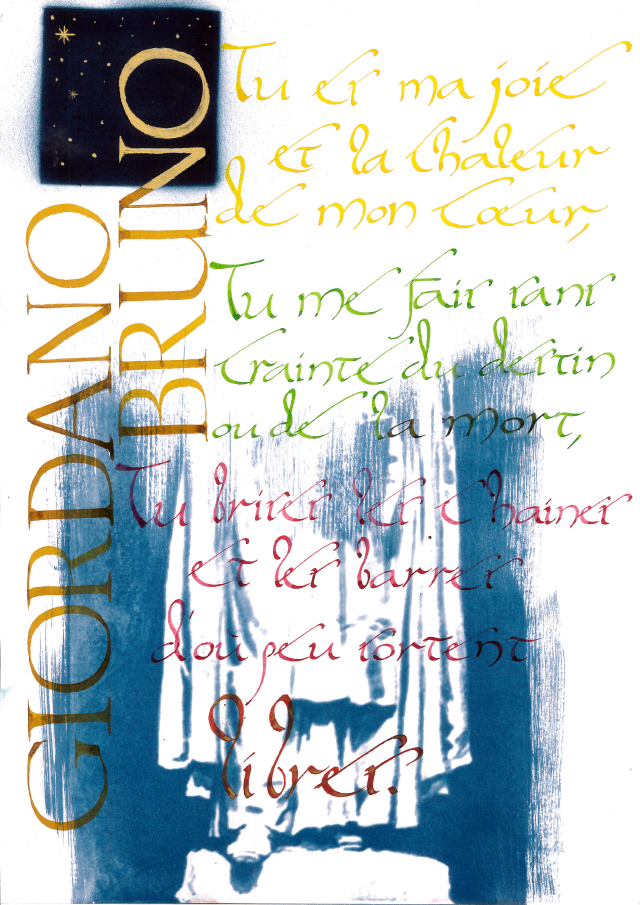 GIORDANO
BRUNO
Tu es ma joie
et la chaleur
de mon cœur,
Tu me fais sans
crainte du destin
ou de la mort,
Tu brises les chaines
et les barres
d'où peu sortent
libres.